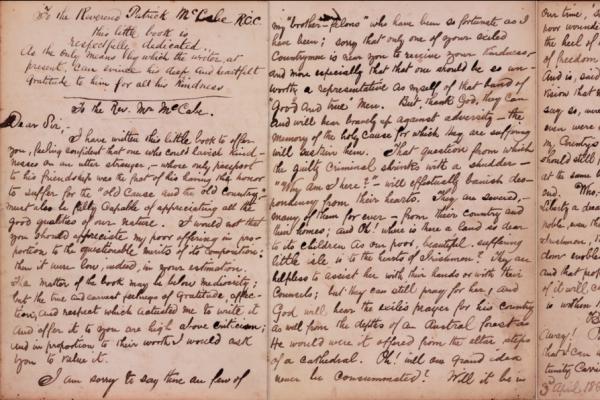 To the Reverend Patrick McCabe R.C.C.
this little book is
respectfully dedicated.
As the only means by which the writer, at
present, can evince his deep and heartfelt
Gratitude to him for all his Kindness
To the Rev. Mr McCabe.
Dear Sir,-
I have written this little book to offer
you, feeling confident that one who could lavish kind-
nesses on an utter stranger - whose only passport
to his friendship was the fact of his having the honor
to suffer for the "old Cause and the old Country"
must also be fully capable of appreciating all the
good qualities of our nature. I would not that
you should appreciate my poor offering in pro-
portion to the questionable merits of its composition:
then it were low, indeed, in your estimation.
The matter of the book may be below mediocrity;
but the true and earnest feelings of Gratitude, affec-
tion, and respect which actuated me to write it
and offer it to you are high above criticism;
and in proportion to their worth I would ask
you to value it.
I am sorry to say there are few of
my "brother-felons" who have been so fortunate as I
have been; sorry that only one of your exiled
Countrymen is near you to receive your kindness,
and more especially that that one should be so un-
worthy a representative as myself of that band of
"Good and true" Men. But, thank God, they can
and will bear bravely up against adversity - the
memory of the holy cause for which they are suffering
will sustain them. That question from which
the guilty Criminal shrinks with a shudder -
"Why am I here?" - will effectually banish des-
pondency from their hearts. They are severed,-
many of them for ever - from their Country and
their homes; and Oh! where is there a land so dear
to its children as our poor, beautiful, suffering
little isle is to the hearts of Irishmen? They are
helpless to assist her with their hands or with their
Counsels; but they can still pray for her, and
God will hear the exile's prayer for his country
as well from the depths of an Austral forest as
He would were it offered from the altar steps
of a cathedral. Oh! will our Grand idea
never be Consummated? Will it be in
Our time, 
poor wounde
the heel of
of freedom
And is, said
vision that
say so, 
even were
my Country's
should still
at the same
end. Who
Liberty a dea
noble, even th
Irishmen, th
dom enoble
and that prof
of it will c
is within
Away!
that I can
tunity, Carrie
3 April 186